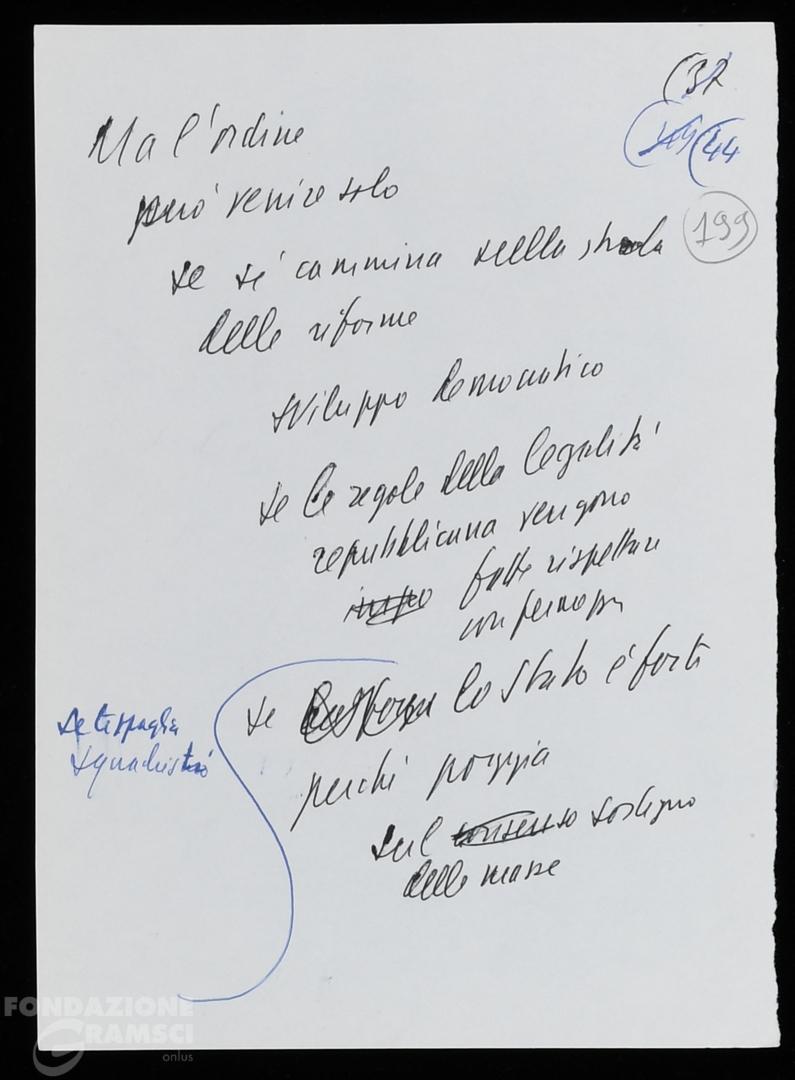 (32
(44
199
Ma l'ordine
può venire solo
se si cammina sulla strada
delle riforme
sviluppo democratico
se le regole della legalità
repubblicana vengono
fatte rispettare
con fermezza
se lo Stato è forte
perché poggia
sul consenso sostegno
delle masse
se
squadristi
FONDAZIONE
GRAMSCI
onlus